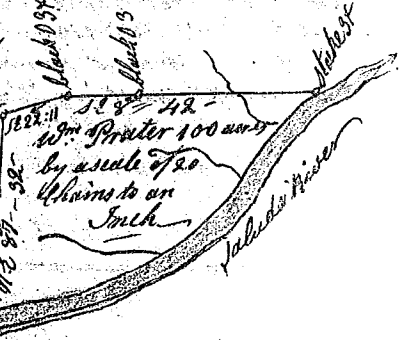 black O 3x
black O 3
Stake 3x
St 22:11
S1 8º 42
Wm Prater 100 acres
by a scale of 20
Chains to an
Inch
Saluda River